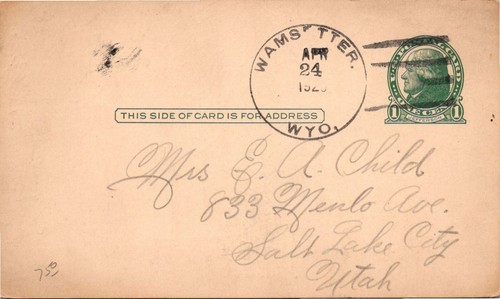 WAMSUTTER.
APR
24
WYO.
JEFFERSON
THIS SIDE OF CARD IS FOR ADDRESS
Mrs E. A. Child
833 Menlo Ave.
Salt Lake City
Utah